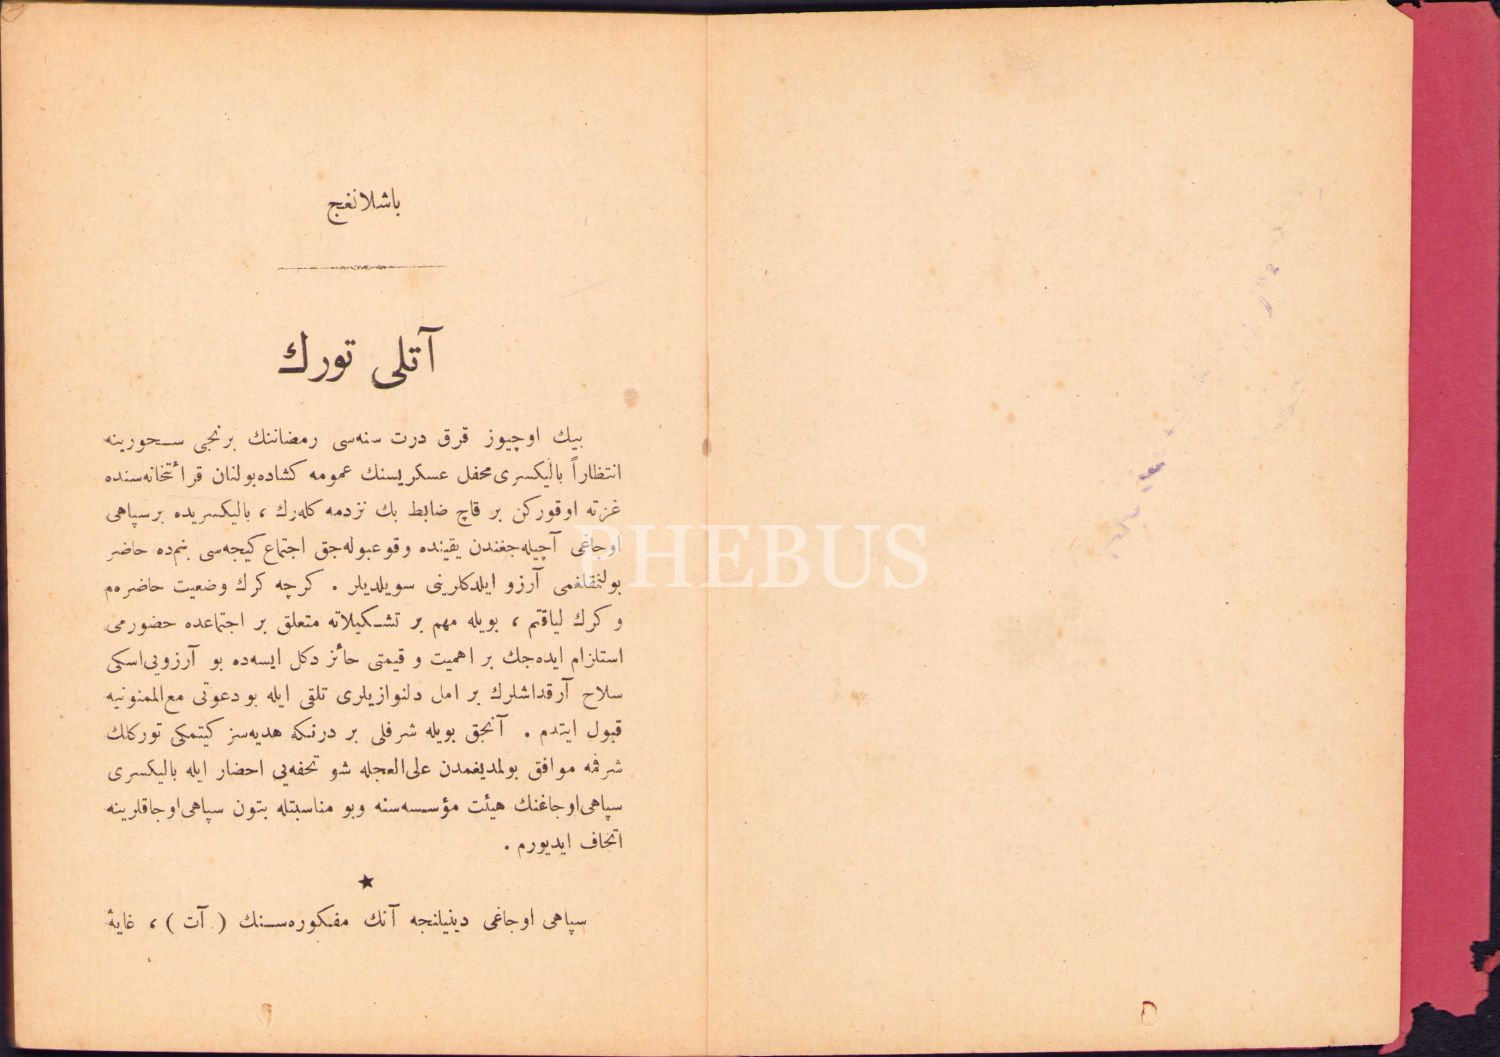 باشلانغج
آتلی تورك
بيك اوچيوز قرق درت سنه‌سی رمضاننك برنجی سـحورينه
انتظاراً باليكسری محفل عسكريسنك عمومه كشاده‌بولنان قرائتخانه‌سنده
غزته اوقوركن بر قاچ ضابط بك نزدمه كله‌رك ، باليكسريده برسپاهی
اوجاغی آچيله‌جغندن يقينده وقوعبوله‌جق اجتماع كيجه‌سی بنم‌ده حاضر
بولنمقلغمی آرزو ايلدكلرينی سويلديلر . كرچه كرك وضعيت حاضره‌م
و كرك لياقتم ، بويله مهم بر تشـكيلاته متعلق بر اجتماعده حضورمی
استلزام ايده‌جك بر اهميت و قيمتی حائز دكل ايسه‌ده بو آرزويی‌اسكی
سلاح آرقداشلرك بر امل دلنوازيلری تلقی ايله بو دعوتی مع‌الممنونيه
قبول ايتدم . آنجق بويله شرفلی بر درنكه هديه‌سز كيتمكی توركلك
شرفنه موافق بولمديغمدن علی‌العجله شو تحفه‌يی احضار ايله باليكسری
سپاهی‌اوجاغنك هيئت مؤسسه‌سنه وبو مناسبتله بتون سپاهی‌اوجاقلرينه
اتحاف ايديورم .
★
سپاهی اوجاغی دينيلنجه آنك مفكوره‌سـنك ( آت ) ، غاية
PHEBUS